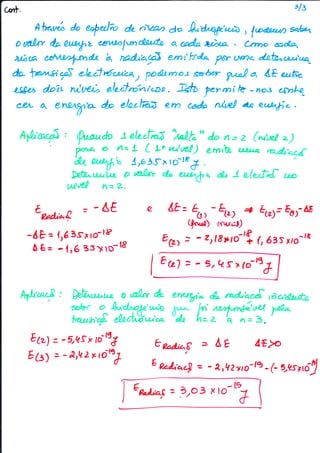 Cont. 3/3
Através do espectro de riscas do hidrogénio, podemos saber
o valor da energia correspondente a cada risca. Como cada
risca corresponde à radiação emitida por uma determinada
transição electrónica, podemos saber qual a ΔE entre
esses dois níveis electrónicos. Isto permite-nos conhe
cer a energia do electrão em cada nível de energia.
Aplicação: Quando 1 electrão "salta" do n=2 (nível 2)
para o n=1 (1º nível) emite uma radiação
de energia 1,635x10⁻¹⁸ J.
Determine o valor da energia de 1 electrão no
nível n=2.
E radiaç = -ΔE e ΔE = E(1) - E(2) ⇒ E(2) = E(1) - ΔE
(final) (inicial)
-ΔE = 1,635x10⁻¹⁸
ΔE = -1,635x10⁻¹⁸
E(2) = -2,18x10⁻¹⁸ + 1,635x10⁻¹⁸
E(2) = -5,45x10⁻¹⁹ J
Aplicação: Determine o valor da energia da radiação incidente
sobre o hidrogénio que foi responsável pela
transição electrónica de n=2 a n=3.
E(2) = -5,45x10⁻¹⁹ J
E(3) = -2,42x10⁻¹⁹ J
E radiaç = ΔE ΔE>0
E radiaç = -2,42x10⁻¹⁹ - (-5,45x10⁻¹⁹)
E radiaç = 3,03x10⁻¹⁹ J